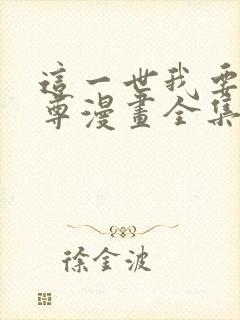 這一世我要
尊漫畫全集
徐金波